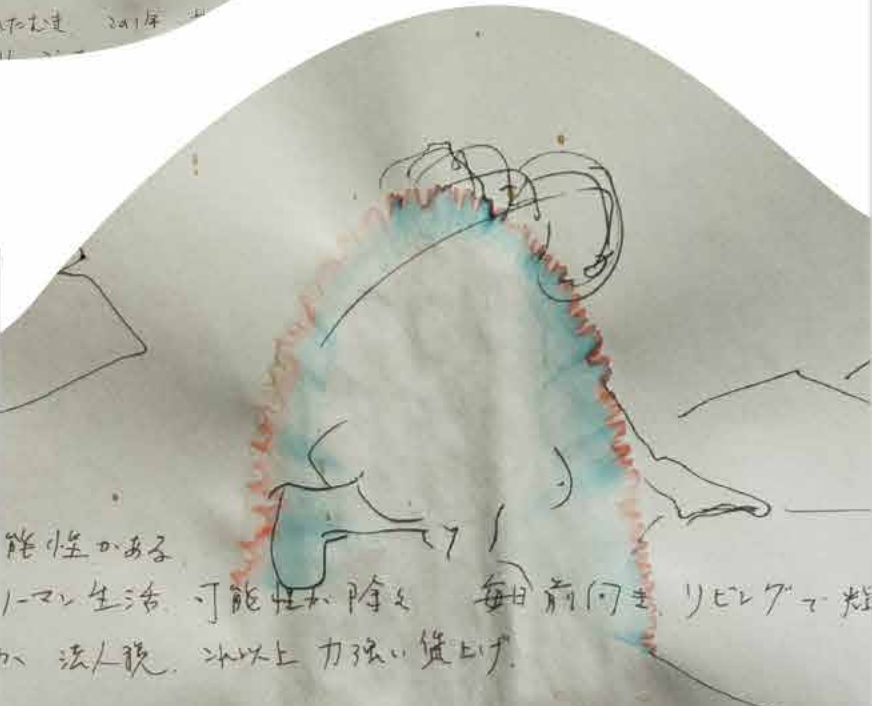 2001年
能性がある
リーマン生活、可能性が除え 毎日前向き、リビングで
法人税、これ以上力強い賃上げ、